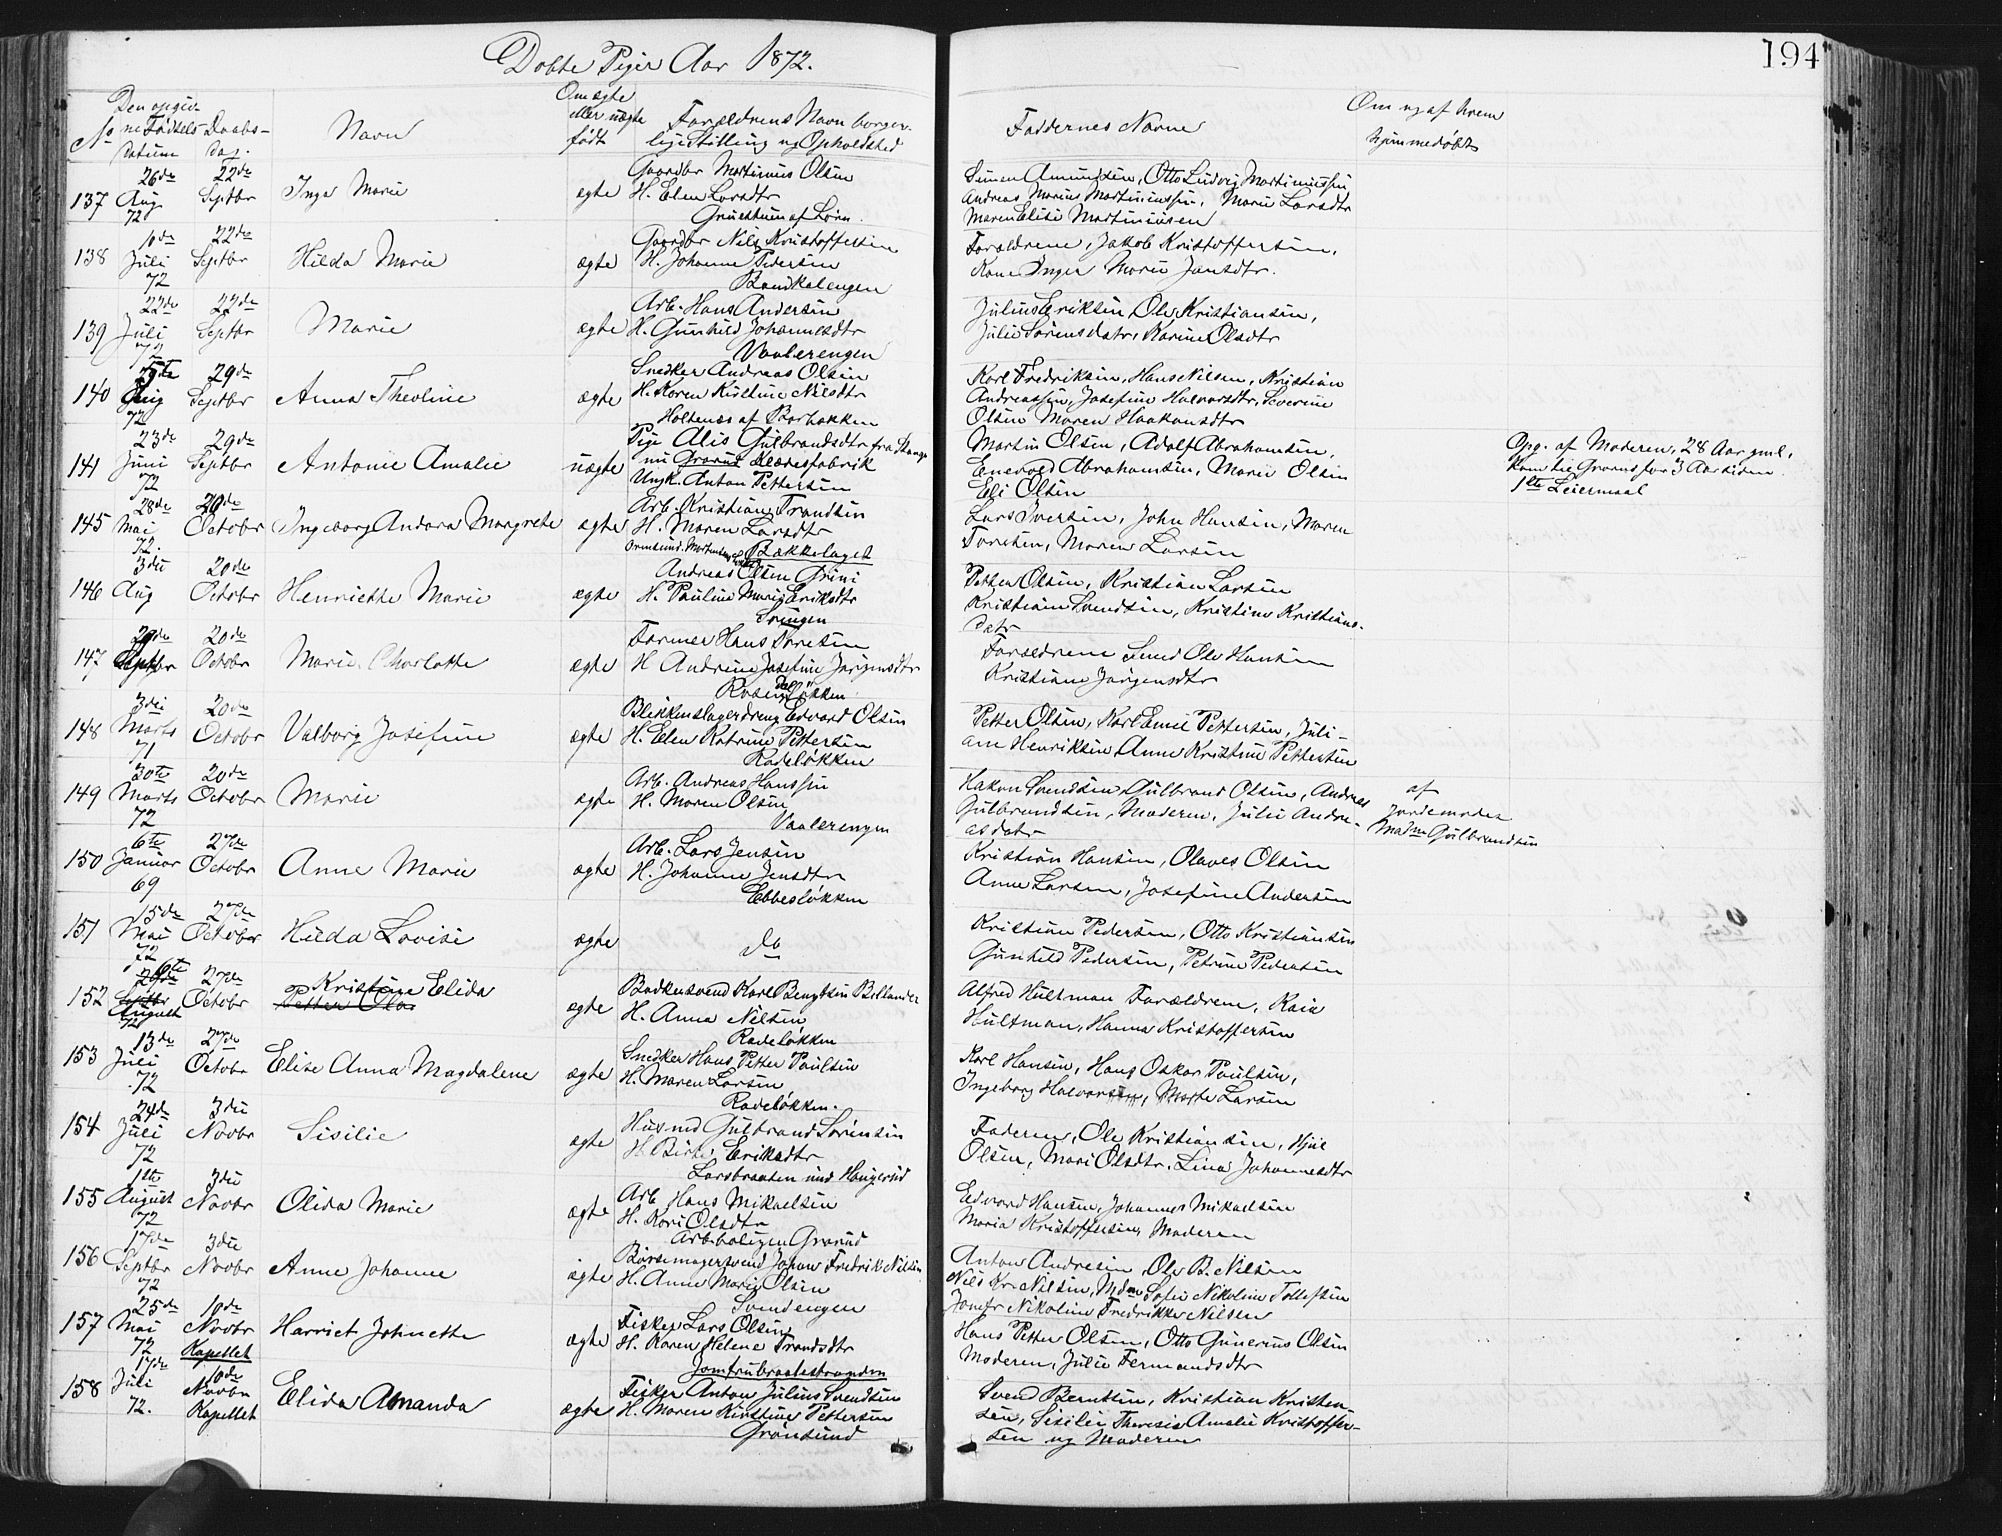 Døbte Piger Aar 1872.
194
No
Den opgiv-
ne Fødsels
Datum
Daabs-
dag.
Navn
Om ægte
eller uægte
født
Forældrenes Navn borger-
lige Stilling og Opholdsted
Faddernes Navne
Om og af hvem
hjemmedøbt
137 26de Aug 72 22de Septbr Inga Marie ægte
Gaardbr Martinius Olsen
H. Elen Larsdtr
Simen Amundsen, Otto Ludvig Martiniussen
Andreas Marius Martiniussen, Marie Larsdtr
Maren Elise Martiniusen
138 10de Juli 72 22de Septbr Hilda Marie ægte
Gaardbr Nils Kristoffersen
H. Johanne Pedersen
Forældrene, Jakob Kristoffersen,
Kone Inger Marie Jansdtr.
139 22de Juli 72 22de Septbr Marie ægte
Arb. Hans Andersen
H. Gunhild Johannesdtr
Vaalerengen
Julius Eriksen, Ole Kristiansen,
Julie Sørensdatr, Karine Olsdtr
140 5te 72 29de Septbr Anna Theoline ægte
Snedker Andreas Olsen
H. Karen Kirstine Nilsdtr
Holtenæs af
Karl Fredriksen, Hans Nilsen, Kristian
Andreassen, Josefine Halvorsdtr, Severine
Olsen Maren Haakonsdtr
141 23de Juni 72 29de Septbr Antonie Amalie uægte
Pige Alis Gulbrandsdtr fra Stange
nu Grorud Klædesfabrik
Ungk. Anton Pettersen
Martin Olsen, Adolf Abrahamsen,
Enevold Abrahamsen, Marie Olsen
Eli Olsen
Opg. af Moderen, 28 Aar gml,
Kom til Grorud for 3 Aar siden
1ste Leiermaal
145 28de Mai 72. 20de Octobr Ingeborg Andora Margrete ægte
Arb. Kristian Trandsen
H. Maren Larsdtr
Ormsund. Bækkelaget
Lars Iversen, John Hansen, Maren
Maren Larsen
146 3die Aug 20de Octobr Henriette Marie ægte
Andreas Olsen Grini
H. Pauline Marie Eriksdtr
Petter Olsen, Kristian Larsen
Kristian Svendsen, Kristine Kristians-
datr
147 Septbr 20de Octobr Marie Charlotte ægte
Farmer Hans
H Andrine Josefine Jørgensdtr
Rosenløkken
Forældrene Smed Ole Hansen
Kristiane Jørgensdtr
148 3die Marts 71 20de Octobr Valborg Josefine ægte
Blikkenslagerdreng Edvard Olsen
H. Elen Katrine Pettersen
Rodeløkken
Petter Olsen, Karl Emil Pettersen, Juli-
ane Henriksen Anne Kristine Pettersen
149 30te Marts 72 20de Octobr Marie ægte
Arb. Andreas Hanssen
H. Maren Olsen
Vaalerengen
Hakon Svendsen Gulbrand Olsen, Andreas
Gulbrandsen, Moderen, Julie Andre-
asdatr
af
Jordemoder
Madm Gulbrandsen
150 6te Januar 69 27de Octobr Anne Marie ægte
Arb. Lars Jensen
H. Johanne Jensdtr
Ebbesløkken
Kristian Hansen, Olaves Olsen
Anne Larsen, Josefine Andersen
151 15de Mai 72 27de Octobr Hilda Lovise ægte
do
Kristian Pedersen, Otto Kristiansen
Gunhild Pedersen, Petrine Pedersen
152 6te August 72 27de Octobr Kristine Elida ægte
Petter Olaf
Badkersvend Karl Bengtsen Bollander
H. Anna Nilsen
Rodeløkken
Alfred Hultman Forældrene, Kaia
Hultman, Hanna Kristoffersen
153 13de Juli 72 27de Octobr Elise Anna Magdalene ægte
Snedker Hans Petter Paulsen
H. Maren Larsen
Rodeløkken.
Karl Hansen, Hans Oskar Paulsen,
Ingeborg Halvorsen, Marte Larsen
154 24de Juli 72 3die Novbr Sisilie ægte
Husmd Gulbrand Sørensen
H. Birte Eriksdtr
Larsbraaten und Haugerud
Faderen, Ole Kristiansen,
Olsen, Mari Olsdtr, Lina Johannesdtr
155 1ste August 72 3die Novbr Olida Marie ægte
Arb Hans Mikaelsen
H. Kari Olsdtr
Arbboligen Grorud
Edvard Hansen, Johannes Mikaelsen
Maria Kristoffersen, Moderen
156 17de Septbr 72 3die Novbr Anne Johanne ægte
Børsemagersvend Johan Fredrik Nilsen
H. Anne Marie Olsen
Svendengen
Anton Andresen, Ole B. Nilsen
Nils Kr. Nilsen, Mdm Sofie Nikoline Tollefsen
Jomfr Nikoline Fredrikke Nilsen
157 25de Mai 72 10de Novbr Kapellet Harriet Johnette ægte
Fisker Lars Olsen
H. Karen Helene Trandsdtr
Jomfrubraatestranden
Hans Petter Olsen, Otto Gunerius Olsen
Moderen, Julie Fermandsdtr
158 17de Juli 72. 10de Novbr Kapellet Elida Amanda ægte
Fisker Anton Julius Svendsen
H. Maren Kirstine Pettersen
Grønsund
Svend Berntsen, Kristian Kristen-
sen, Sisilie Theresia Amalie Kristoffer-
sen og Moderen